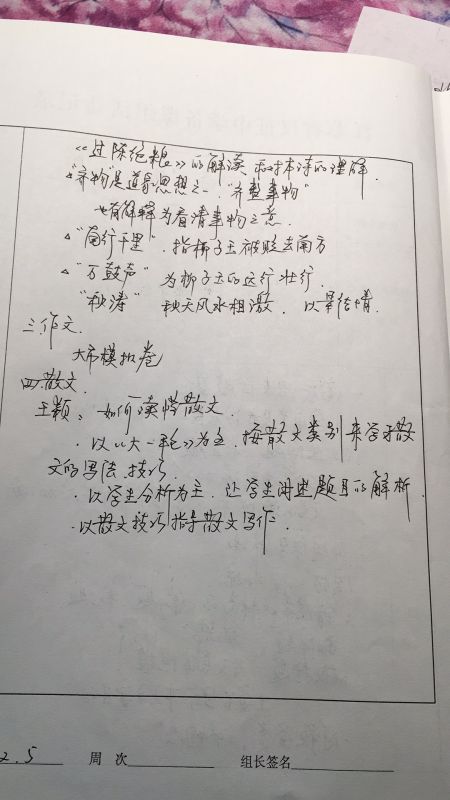 《过陈绝粮》的解读和对本诗的理解.
△"齐物"是道家思想之一."齐整事物"
也有解释为看清事物之意.
△"南行千里".指柳子玉被贬去南方
△"万鼓声"为柳子玉的远行壮行.
"秋涛"秋天风水相激.以景结情.
三.作文.
大市模拟卷
四.散文.
王颖:如何读懂散文.
·以《大一毛》为主.按散文类别来学习散
文的写法.技巧.
·以学生分析为主.让学生阐述题目的解析.
·以散文技巧指导散文写作.
2.5 周 次 组长签名